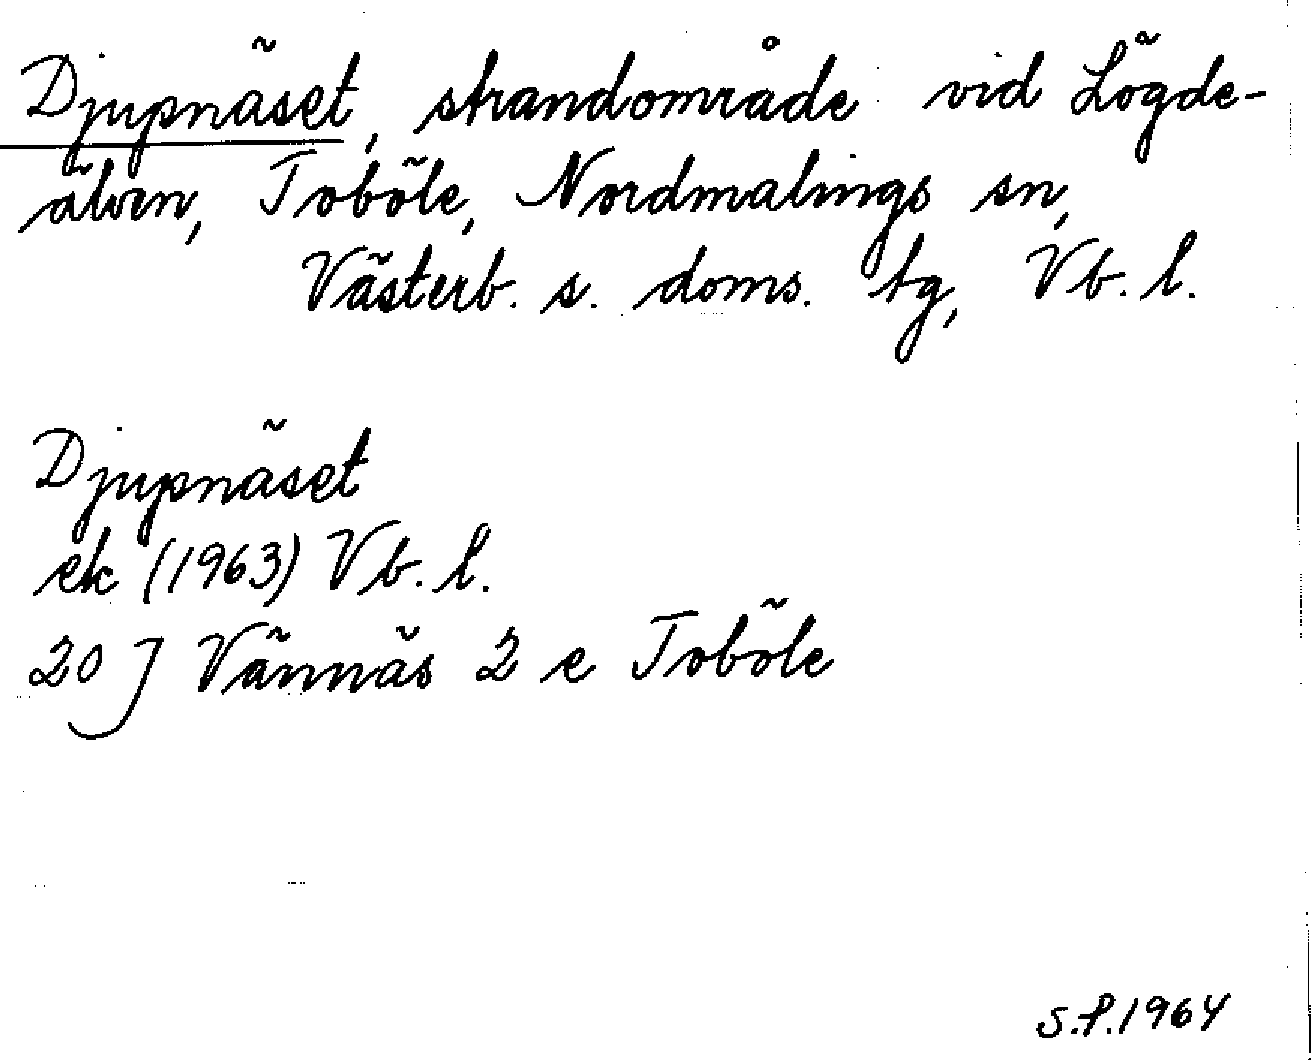 Djupnäset, strandområde vid Lögde-
älven, Toböle, Nordmalings sn,
Västerb. s. doms. tg, Vb. l.
Djupnäset
ek (1963) Vb. l.
20 J Vännäs 2 e Toböle
S.P. 1964